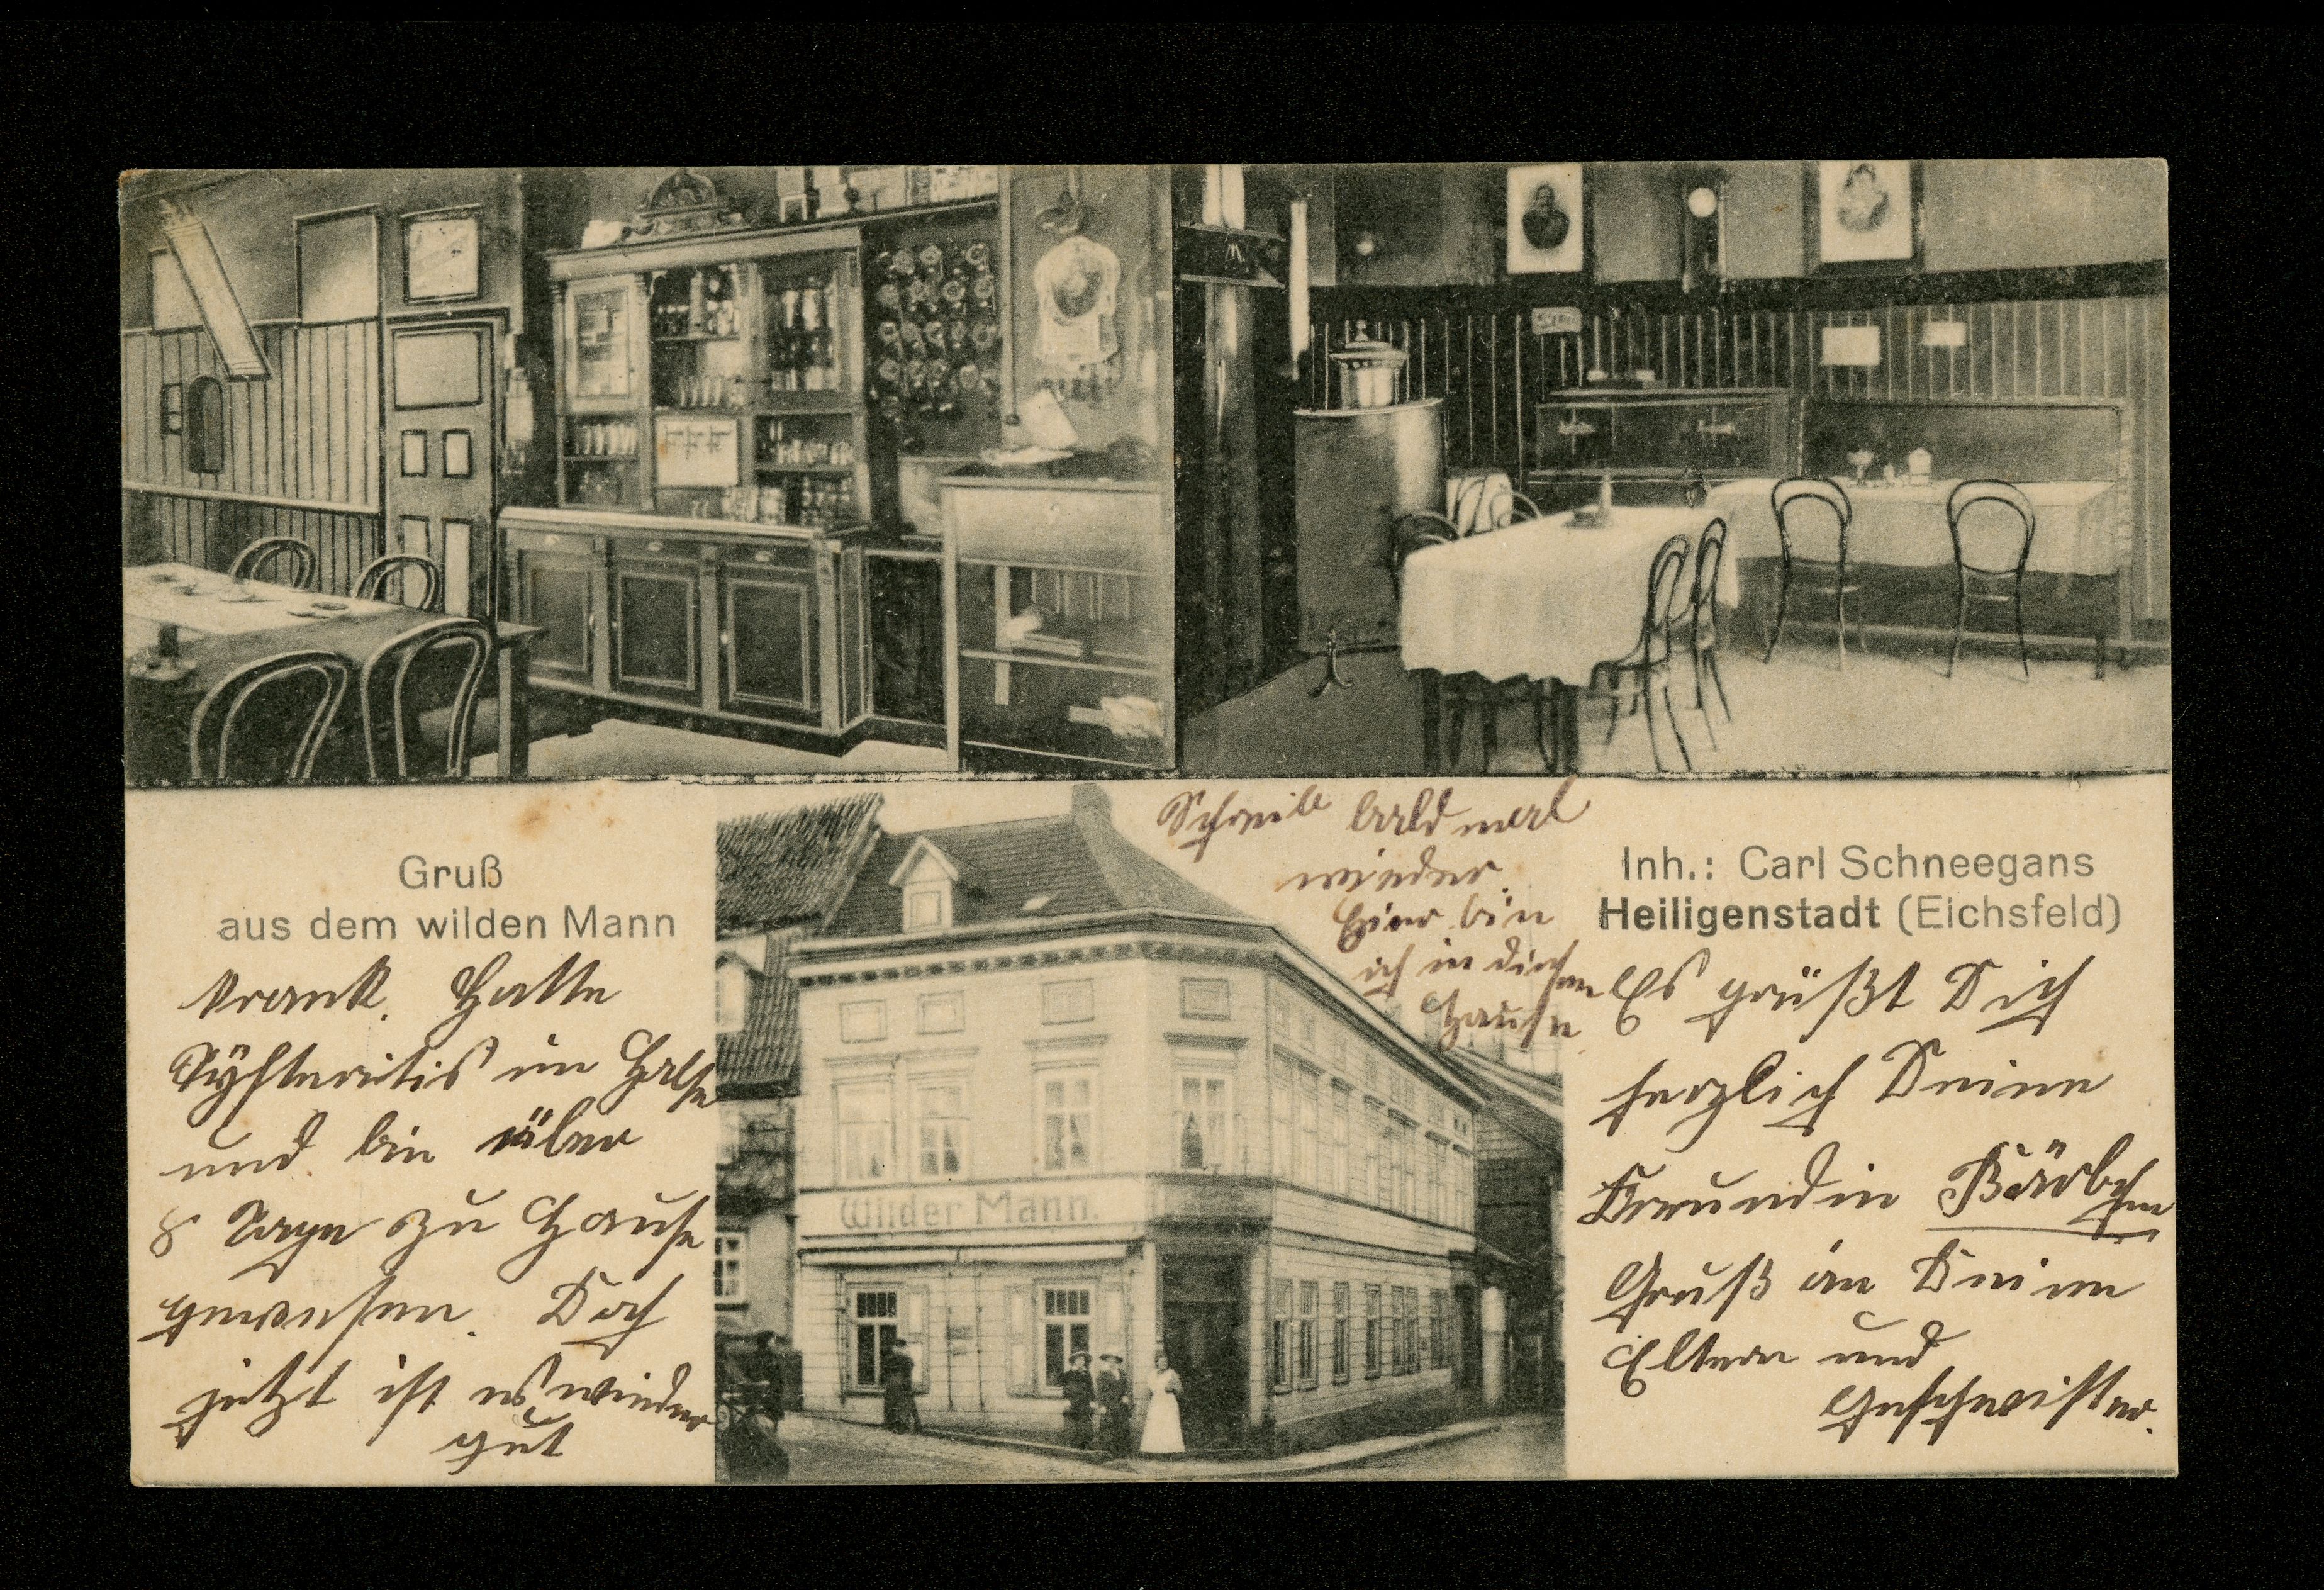 Gruß
aus dem wilden Mann
krank. Hatte
im Halse
und bin über
8 Tage zu Hause
gewesen. Doch
jetzt ist es wieder
gut
Schreib bald mal
wieder.
Hier bin
ich in diesem
Hause
Wilder Mann.
Inh.: Carl Schneegans
Heiligenstadt (Eichsfeld)
Es grüßt Dich
herzlich Deine
Freundin Bärbchen
Gruß an Deine
Eltern und
Geschwister.